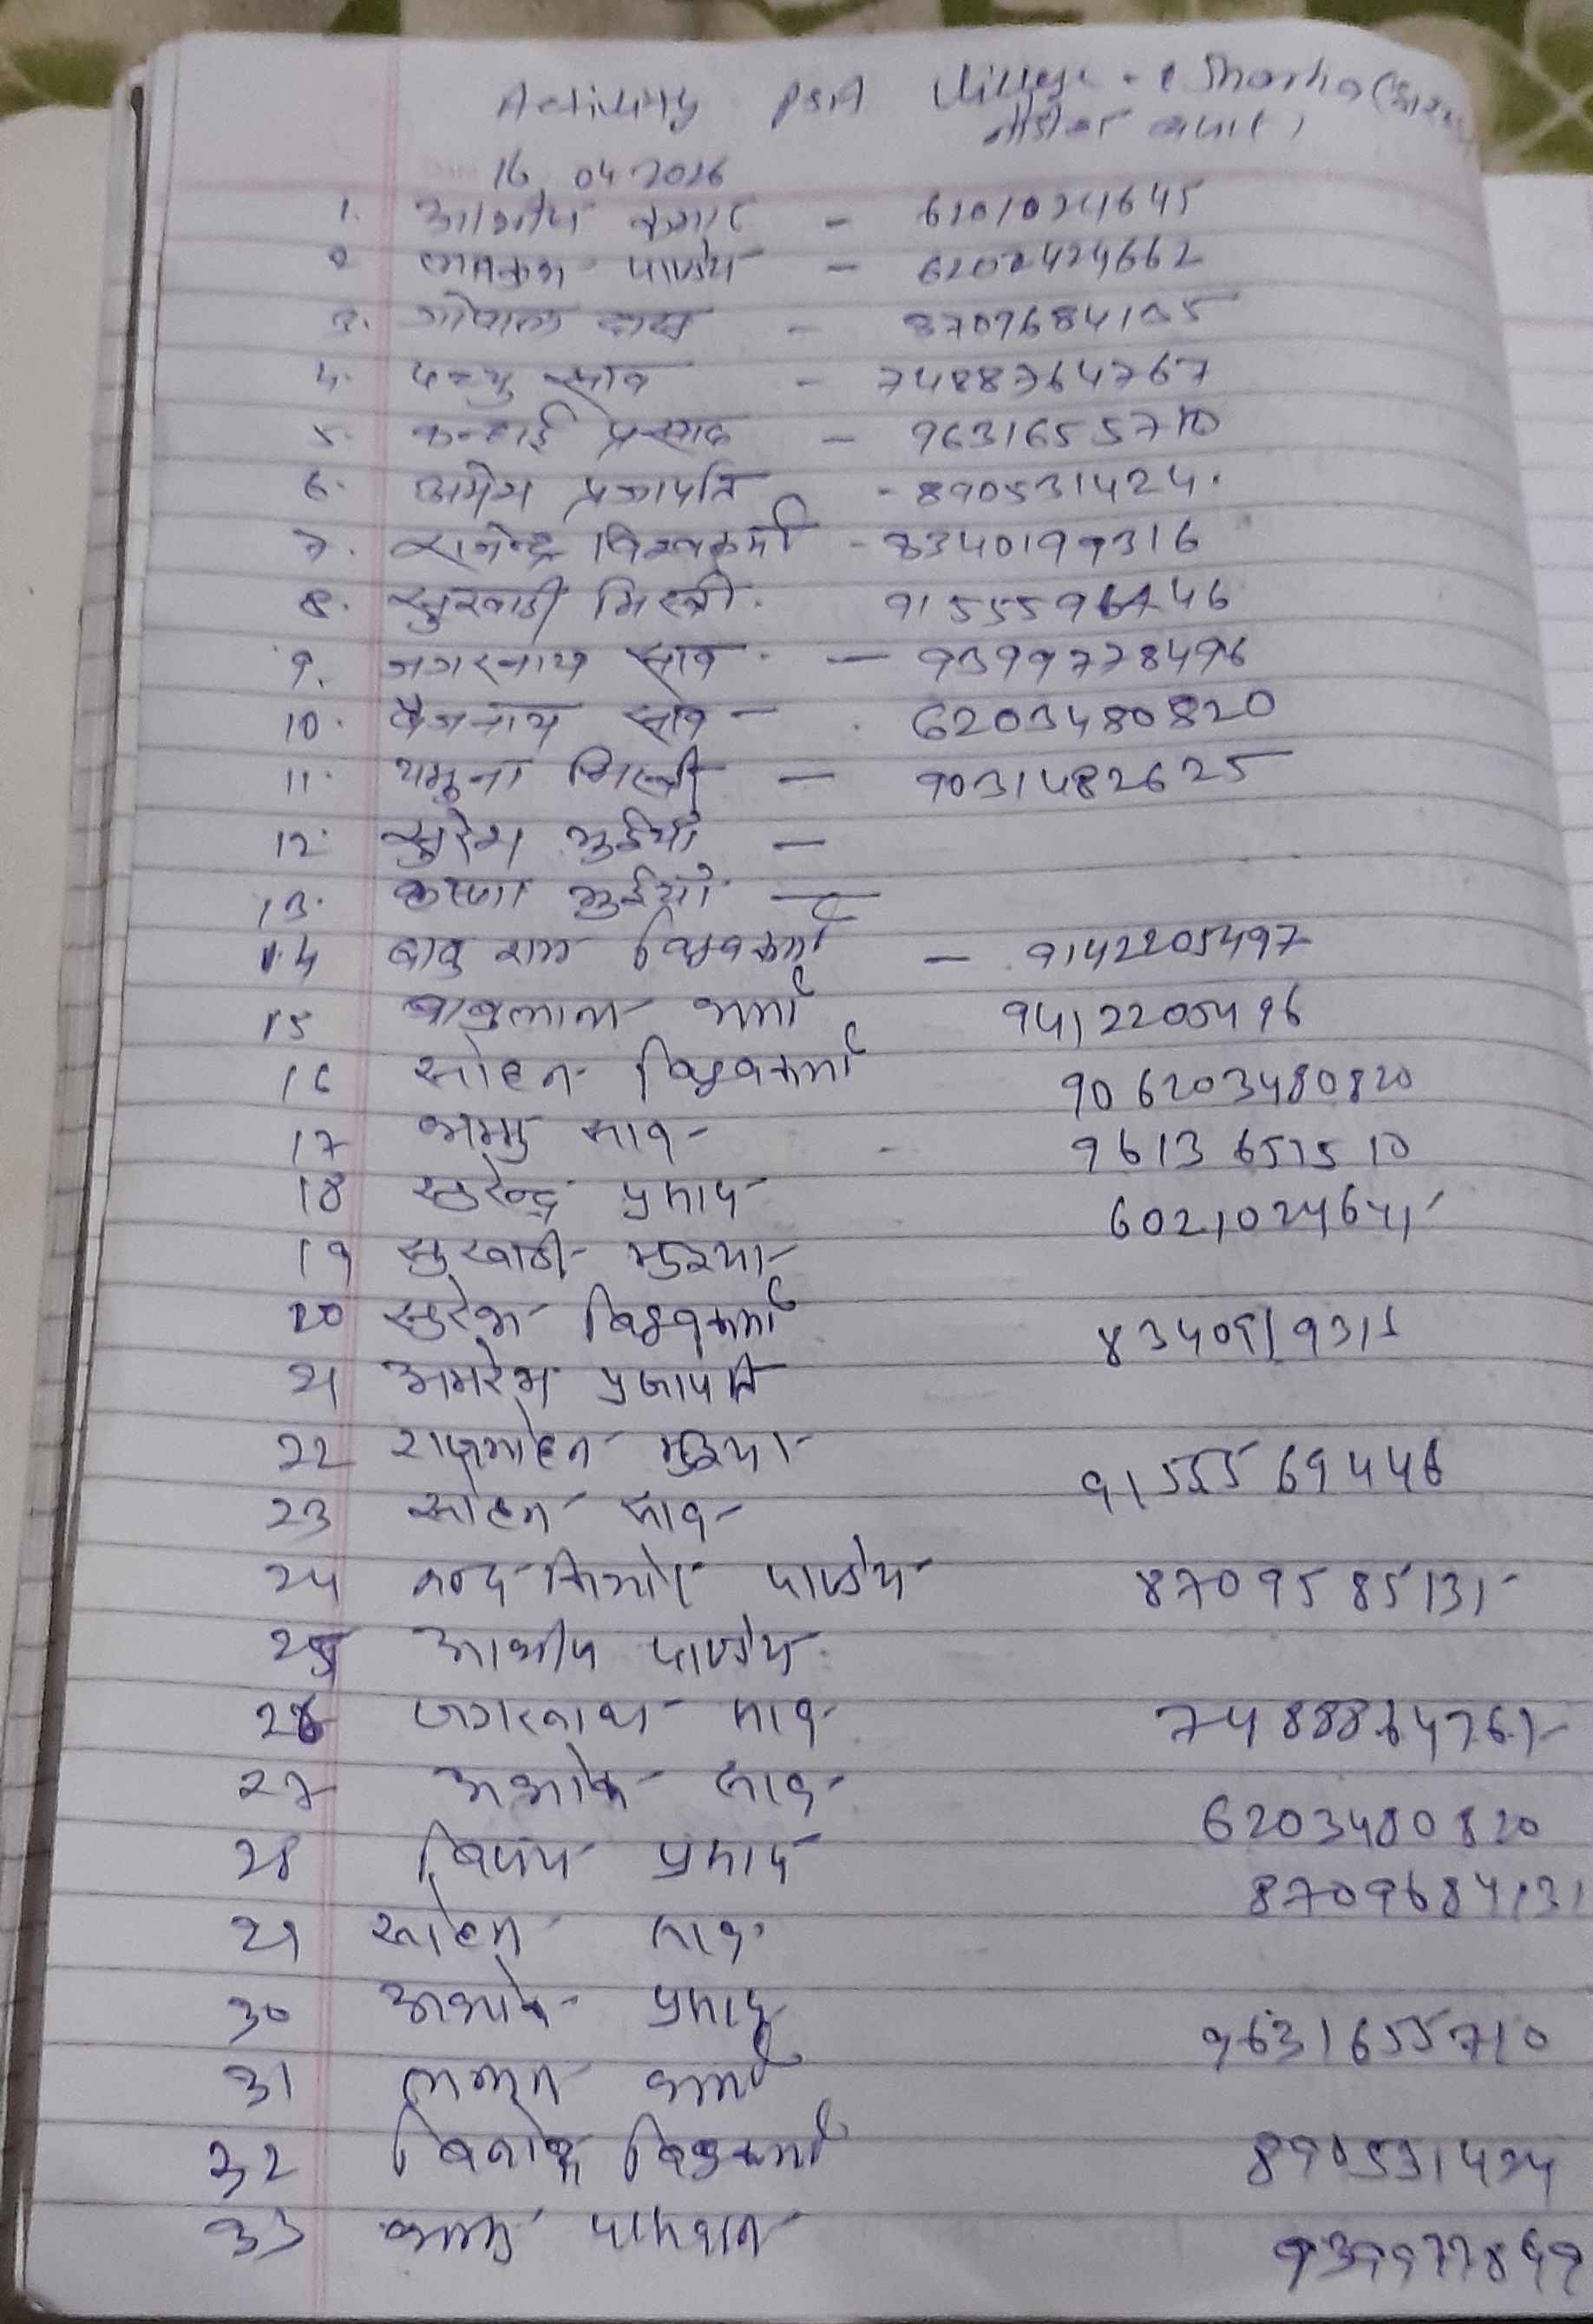 Activity PSA Village - Sharha
16 04 2026
1. आशीष कुमार - 6201024645
2 लवकुश पाण्डेय - 6202424662
3. गोपाल दास - 8709684135
4. पप्पु साव - 7488764767
5. कन्हाई प्रसाद - 9631655710
6. उमेश प्रजापति - 890531424.
7. राजेन्द्र विश्वकर्मा - 8340199316
8. सुखाड़ी मिस्त्री. 9155596446
9. जगरनाथ साव - 9399778496
10. बैजनाथ साव - 6203480820
11. यमुना मिस्त्री - 9031482625
12. सुरेश भुईयाँ -
13. करमा भुईयाँ -
14 बाबु राम विश्वकर्मा - 9142205497
15 बाबुलाल शर्मा 9412205496
16 सोहन विश्वकर्मा 906203480820
17 शम्भु साव 9613651510
18 सुरेन्द्र प्रसाद 6021024641
19 सुखाड़ी भुइया
20 सुरेश विश्वकर्मा 8340919315
21 अमरेश प्रजापति
22 राजमोहन भुइया 9155569446
23 सोहन साव
24 नन्द किशोर पाण्डेय 8709585131
25 आशीष पाण्डेय
26 जगरनाथ साव 7488864767
27 अशोक साव 6203480820
28 विजय प्रसाद 8709684131
29 सोहन साव
30 अशोक प्रसाद 9631655710
31 लखन शर्मा
32 विनोद विश्वकर्मा 890531424
33 शम्भु पासवान 939977849